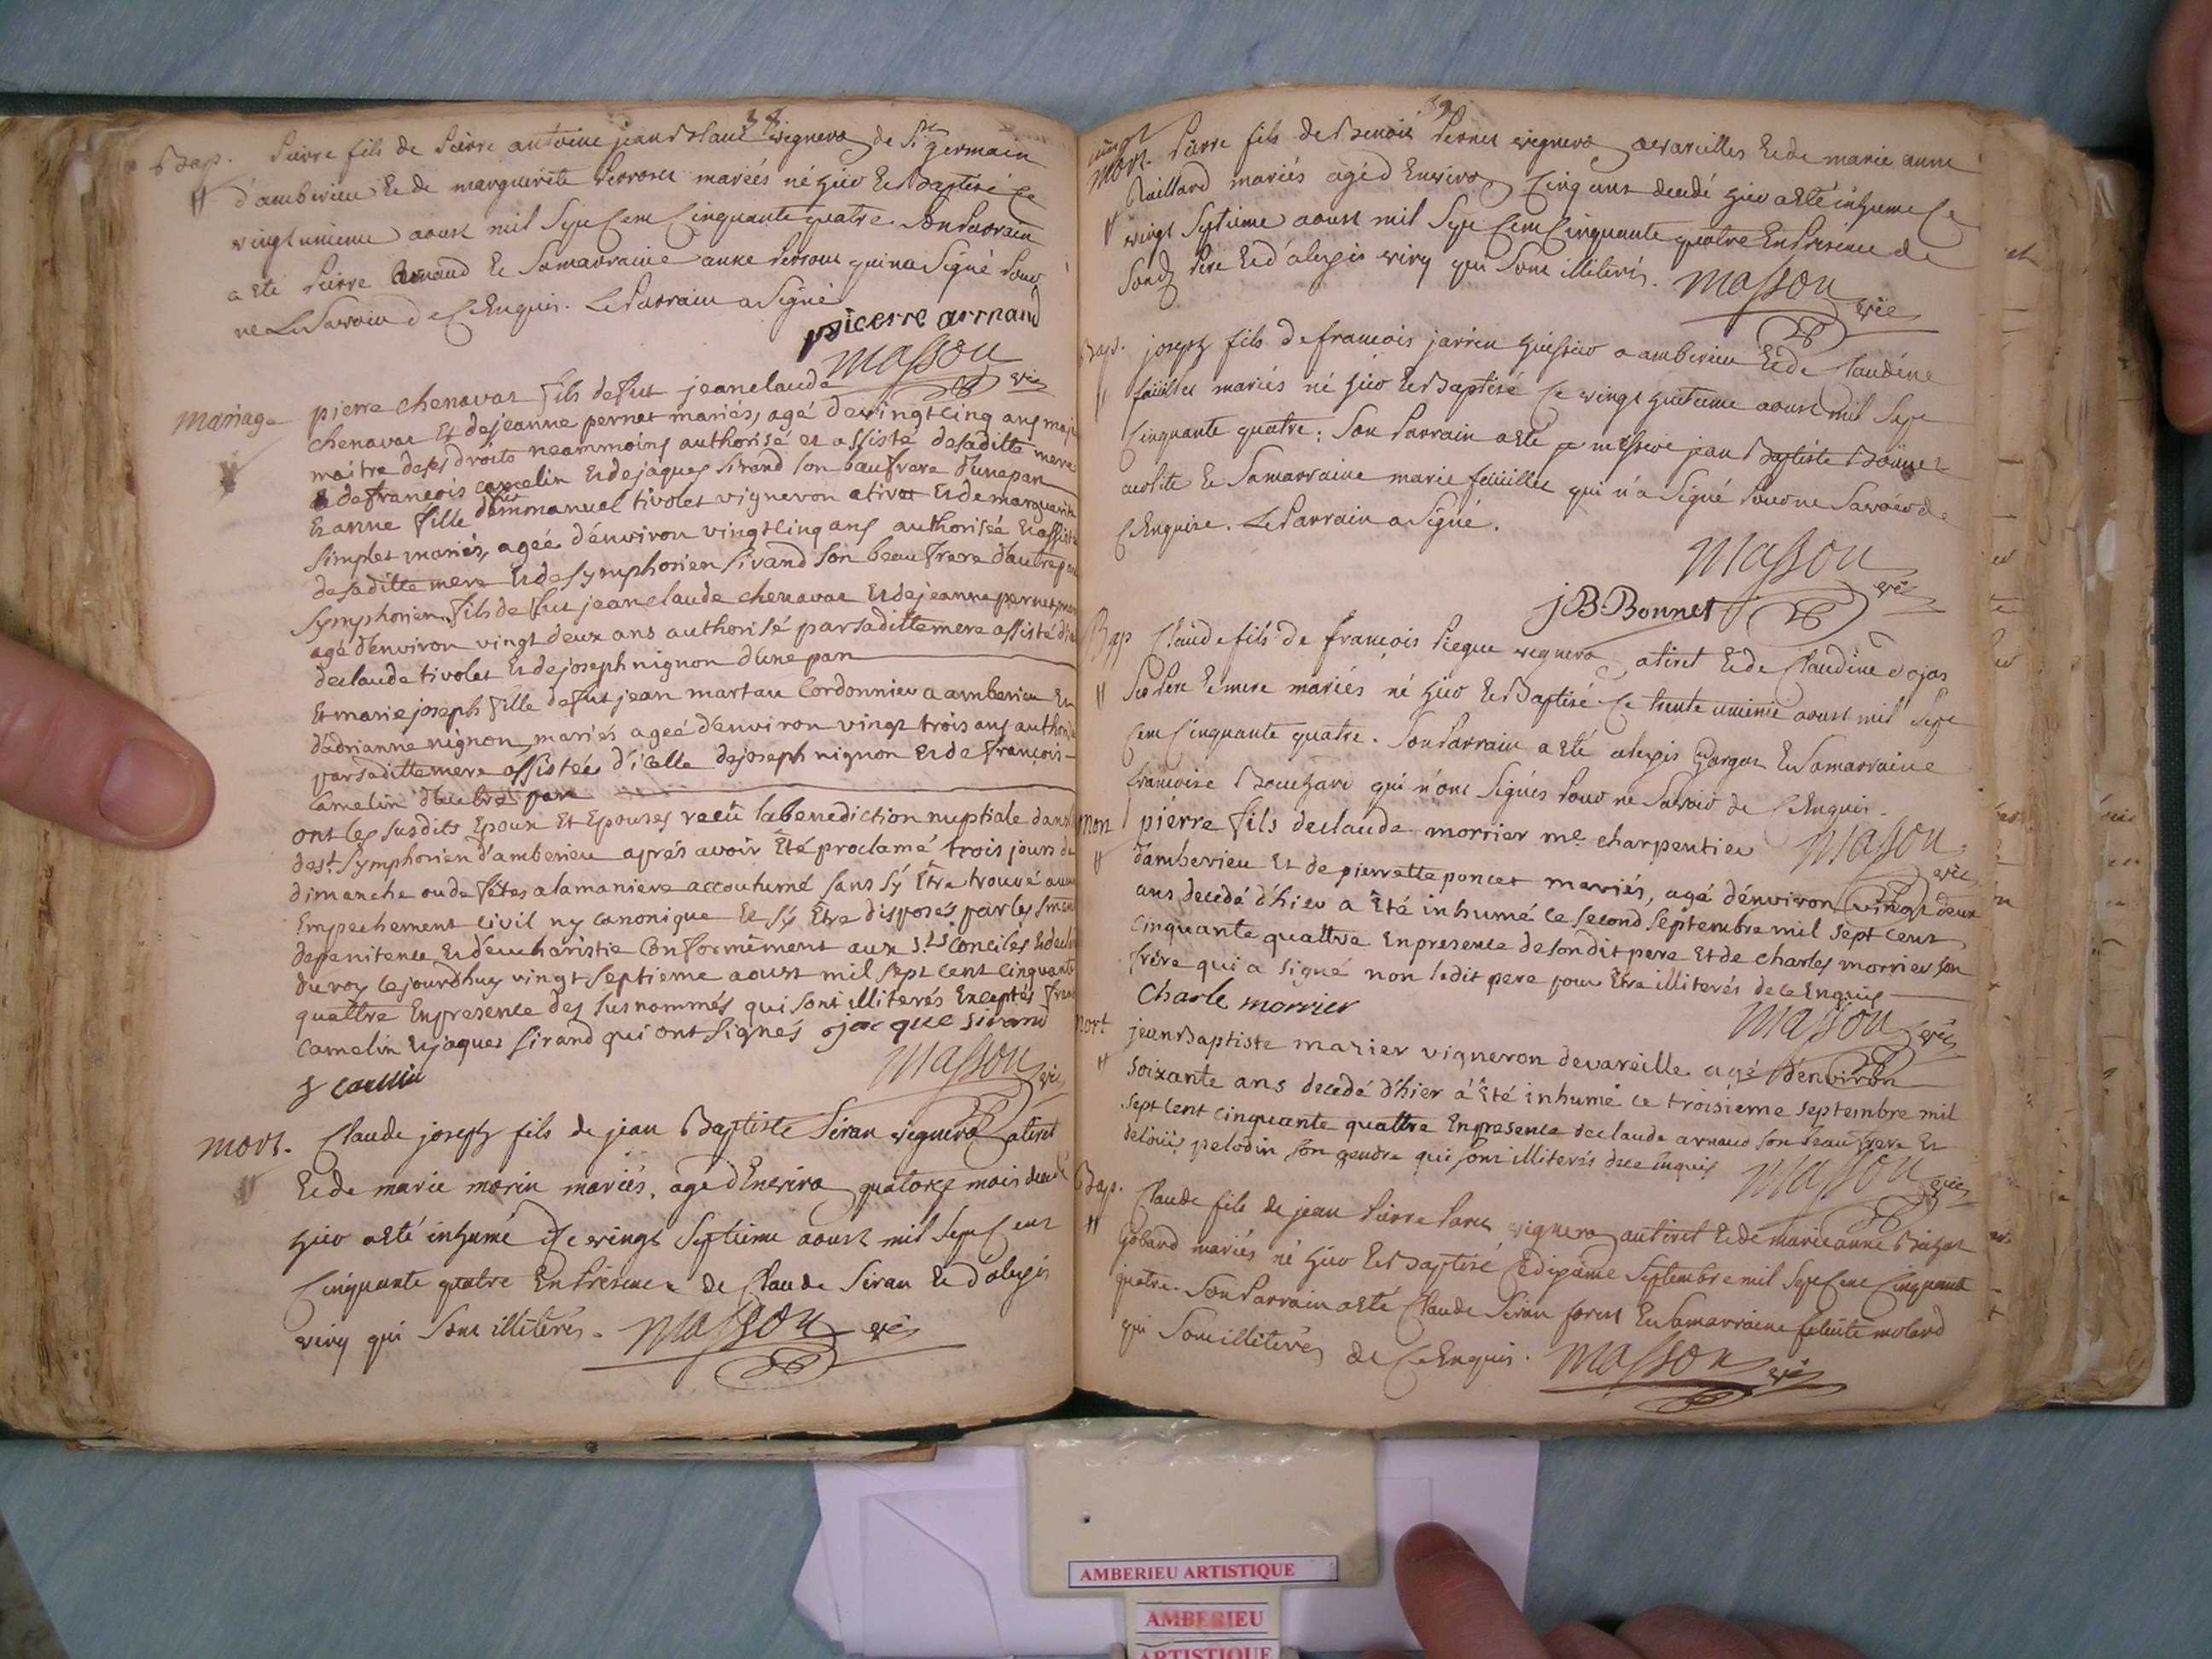 38
Bap. Pierre fils de Pierre antoine jean vigneron de St germain
d'amberieu Et de marguerite mariés né hier Et Baptisé Ce
vingt unieme aoust mil Sept Cent Cinquante quatre. Son Parrain
a Eté Pierre Et Sa marraine anne qui n'a Signé Pour
ne Le Savoir de Ce Enquis. Le Parrain a Signé
pierre arrnaud
Masson vic
mariage pierre chenavat fils de fut jean claude
chenavat Et de jeanne pernet mariés, agé de vingt cinq ans
maitre de ses droits neammoins authorisé et assisté de saditte mere
de françois camelin Et de jaques sirand son baufrere d'une part
Et anne fille d'immanuel tivolet vigneron a tiret Et de marguerite
simplet mariés, ageé d'environ vingt cinq ans authorisée Et
de saditte mere Et de symphorien sirand son beau frere d'autre
Symphorien fils de fut jean claude chenavat Et de jeanne pernet
agé d'environ vingt deux ans authorisé par saditte mere assisté
de claude tivolet Et de joseph nignon d'une part
Et marie joseph fille de fut jean martau Cordonnier a amberieu Et
d'adrianne nignon, mariés ageé d'environ vingt trois ans
par saditte mere assistée d'icelle de joseph nignon Et de françois
Camelin d'autre part
ont les susdits Epoux Et Epouses receu la benediction nuptiale dans
de st. Symphorien d'amberieu aprés avoir Eté proclamé trois jours de
dimanche ou de fêtes a la maniere accoutumé sans s'y Etre trouvé
Empechement civil ny canonique Et s'y Etre disposés par les
de penitence Et d'eucharistie Conformément aux sts Conciles
du roy ce jourd'huy vingt septieme aoust mil sept cent cinquante
quattre En presence des susnommés qui sont illiterés Exceptés
Camelin Et jaques sirand qui ont signés jacque sirand
Masson vic
mort. Claude joseph fils de jean Baptiste Siran vigneron a tiret
Et de marie morin mariés, agé d'Environ quatorze mois
hier a Eté inhumé Ce vingt Septieme aoust mil Sept Cent
Cinquante quatre En Présence de Claude Siran Et d'alexis
viry qui Sont illiterés. Masson vic
39
mort. Pierre fils de Benoit Pernet vigneron a vareilles Et de marie anne
mariés agé d'Environ Cinq ans hier a Eté inhumé Ce
vingt Septieme aoust mil Sept Cent Cinquante quatre En Présence de
Sondt Pere Et d'alexis viry qui Sont illiterés. Masson vic
Bap. joseph fils de francois jarrin a amberieu Et de Claudine
mariés né hier Et Baptisé Ce vingt huitieme aoust mil Sept
Cinquante quatre. Son Parrain a Eté messire jean Baptiste Bonnet
acolite Et Sa marraine marie qui n'a Signé Pour ne Savoir de
Ce Enquise. Le Parrain a Signé.
Masson vic
JB Bonnet
Bap Claude fils de françois vigneron a tiret Et de Claudine
Ses Pere Et mere mariés né hier Et Baptisé Ce trente unieme aoust mil Sept
Cent Cinquante quatre. Son Parrain a Eté alexis Et Sa marraine
francoise qui n'ont Signés Pour ne Savoir de Ce Enquis.
Masson vic
mort pierre fils de claude morrier me charpentier
d'amberieu Et de pierrette poncet mariés, agé d'environ vingt deux
ans decedé d'hier a Eté inhumé ce second septembre mil sept cent
cinquante quattre En presence de son dit pere Et de charles morrier son
frère qui a signé non ledit pere pour Etre illiterés de ce Enquis
Charle morrier Masson vic
mort jean Baptiste mazier vigneron de vareille agé d'environ
soixante ans decedé d'hier a Eté inhumé ce troisieme septembre mil
sept cent cinquante quattre En presence de claude arnaud son beau frere Et
de pelodin son gendre qui sont illiterés de ce Enquis Masson vic
Bap. Claude fils de jean Pierre vigneron au tiret Et de marie anne
Gobard mariés né hier Et Baptisé Ce dixiéme Septembre mil Sept Cent Cinquante
quatre. Son Parrain a Eté Claude Siran Et Sa marraine molard
qui Sont illiterés de Ce Enquis. Masson vic
AMBERIEU ARTISTIQUE
AMBERIEU
ARTISTIQUE